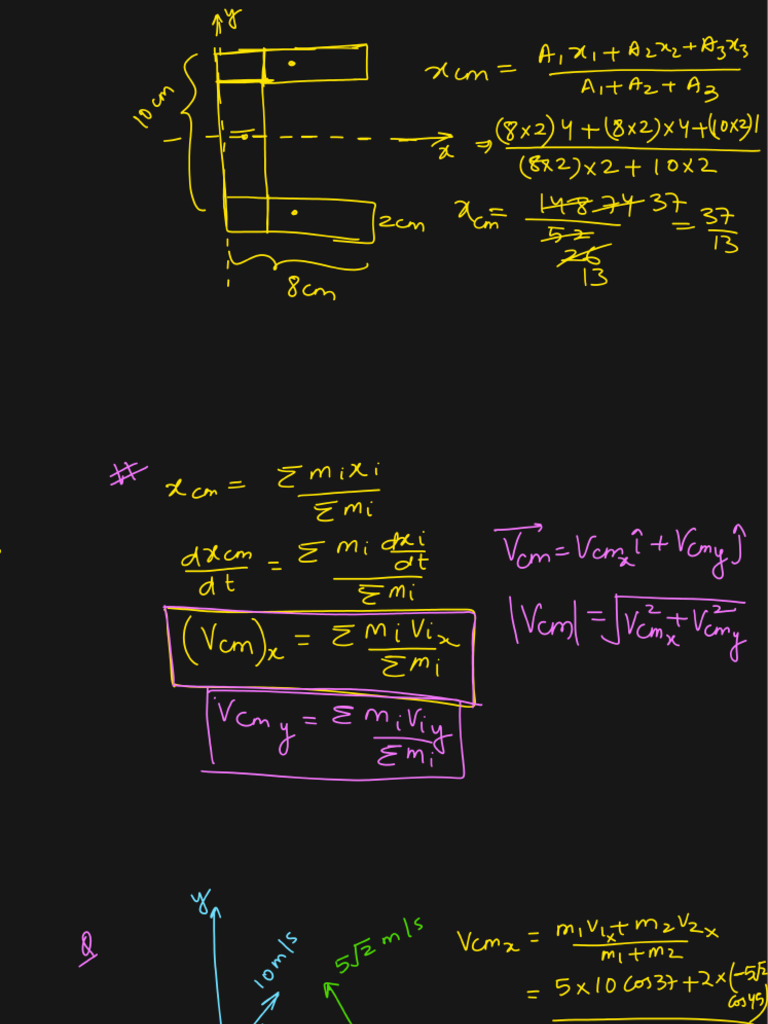 y
10cm
x
2cm
8cm
xcm = A₁x₁ + A₂x₂ + A₃x₃ / A₁ + A₂ + A₃
⇒ (8×2)4 + (8×2)×4 + (10×2)1 / (8×2)×2 + 10×2
xcm = 148 74 37 / 52 26 13 = 37/13
# xcm = Σmixi / Σmi
dxcm/dt = Σ mi dxi/dt / Σmi
(Vcm)x = Σ mi Vix / Σmi
Vcmy = Σ miViy / Σmi
V⃗cm = Vcmx î + Vcmy ĵ
|Vcm| = √(V²cmx + V²cmy)
Q
y
10m/s
5√2 m/s
Vcmx = m₁V₁x + m₂V₂x / m₁ + m₂
= 5×10 cos37 + 2×(-5√2 cos45)